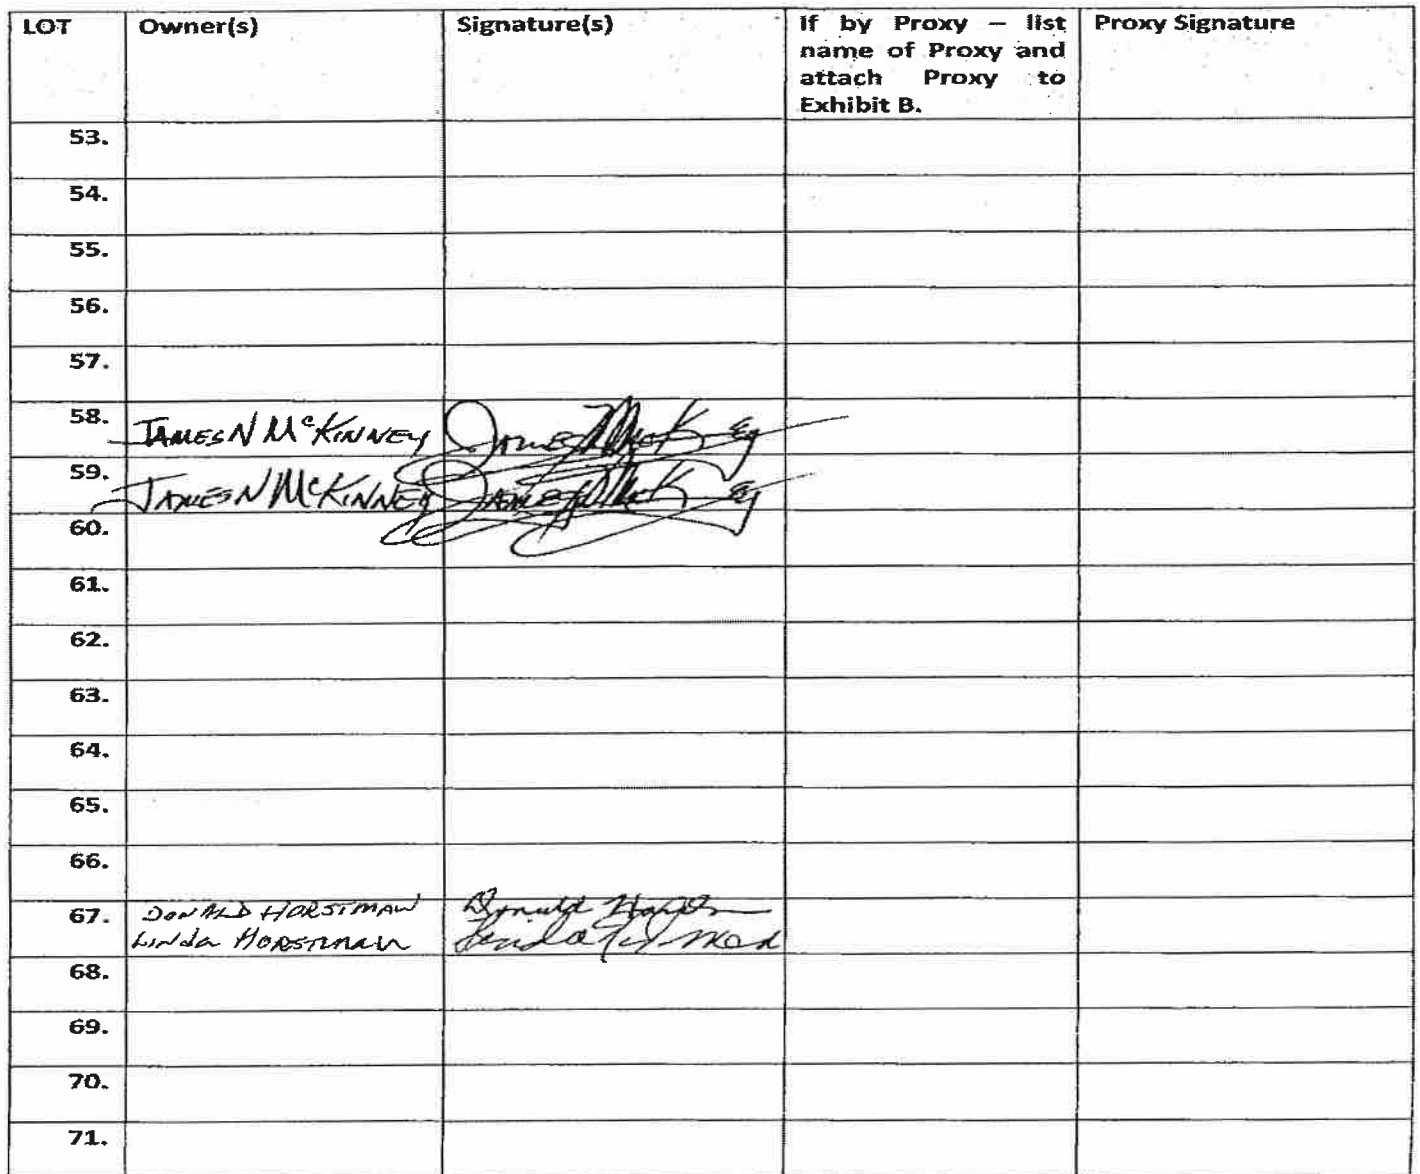 LOT Owner(s) Signature(s) If by Proxy – list Proxy Signature
name of Proxy and
attach Proxy to
Exhibit B.
53.
54.
55.
56.
57.
58. JAMES N McKINNEY James N McKinney
59. JAMES N McKINNEY James N McKinney
60.
61.
62.
63.
64.
65.
66.
67. DONALD HORSTMAN Donald Horstman
LINDA HORSTMAN Linda Horstman
68.
69.
70.
71.